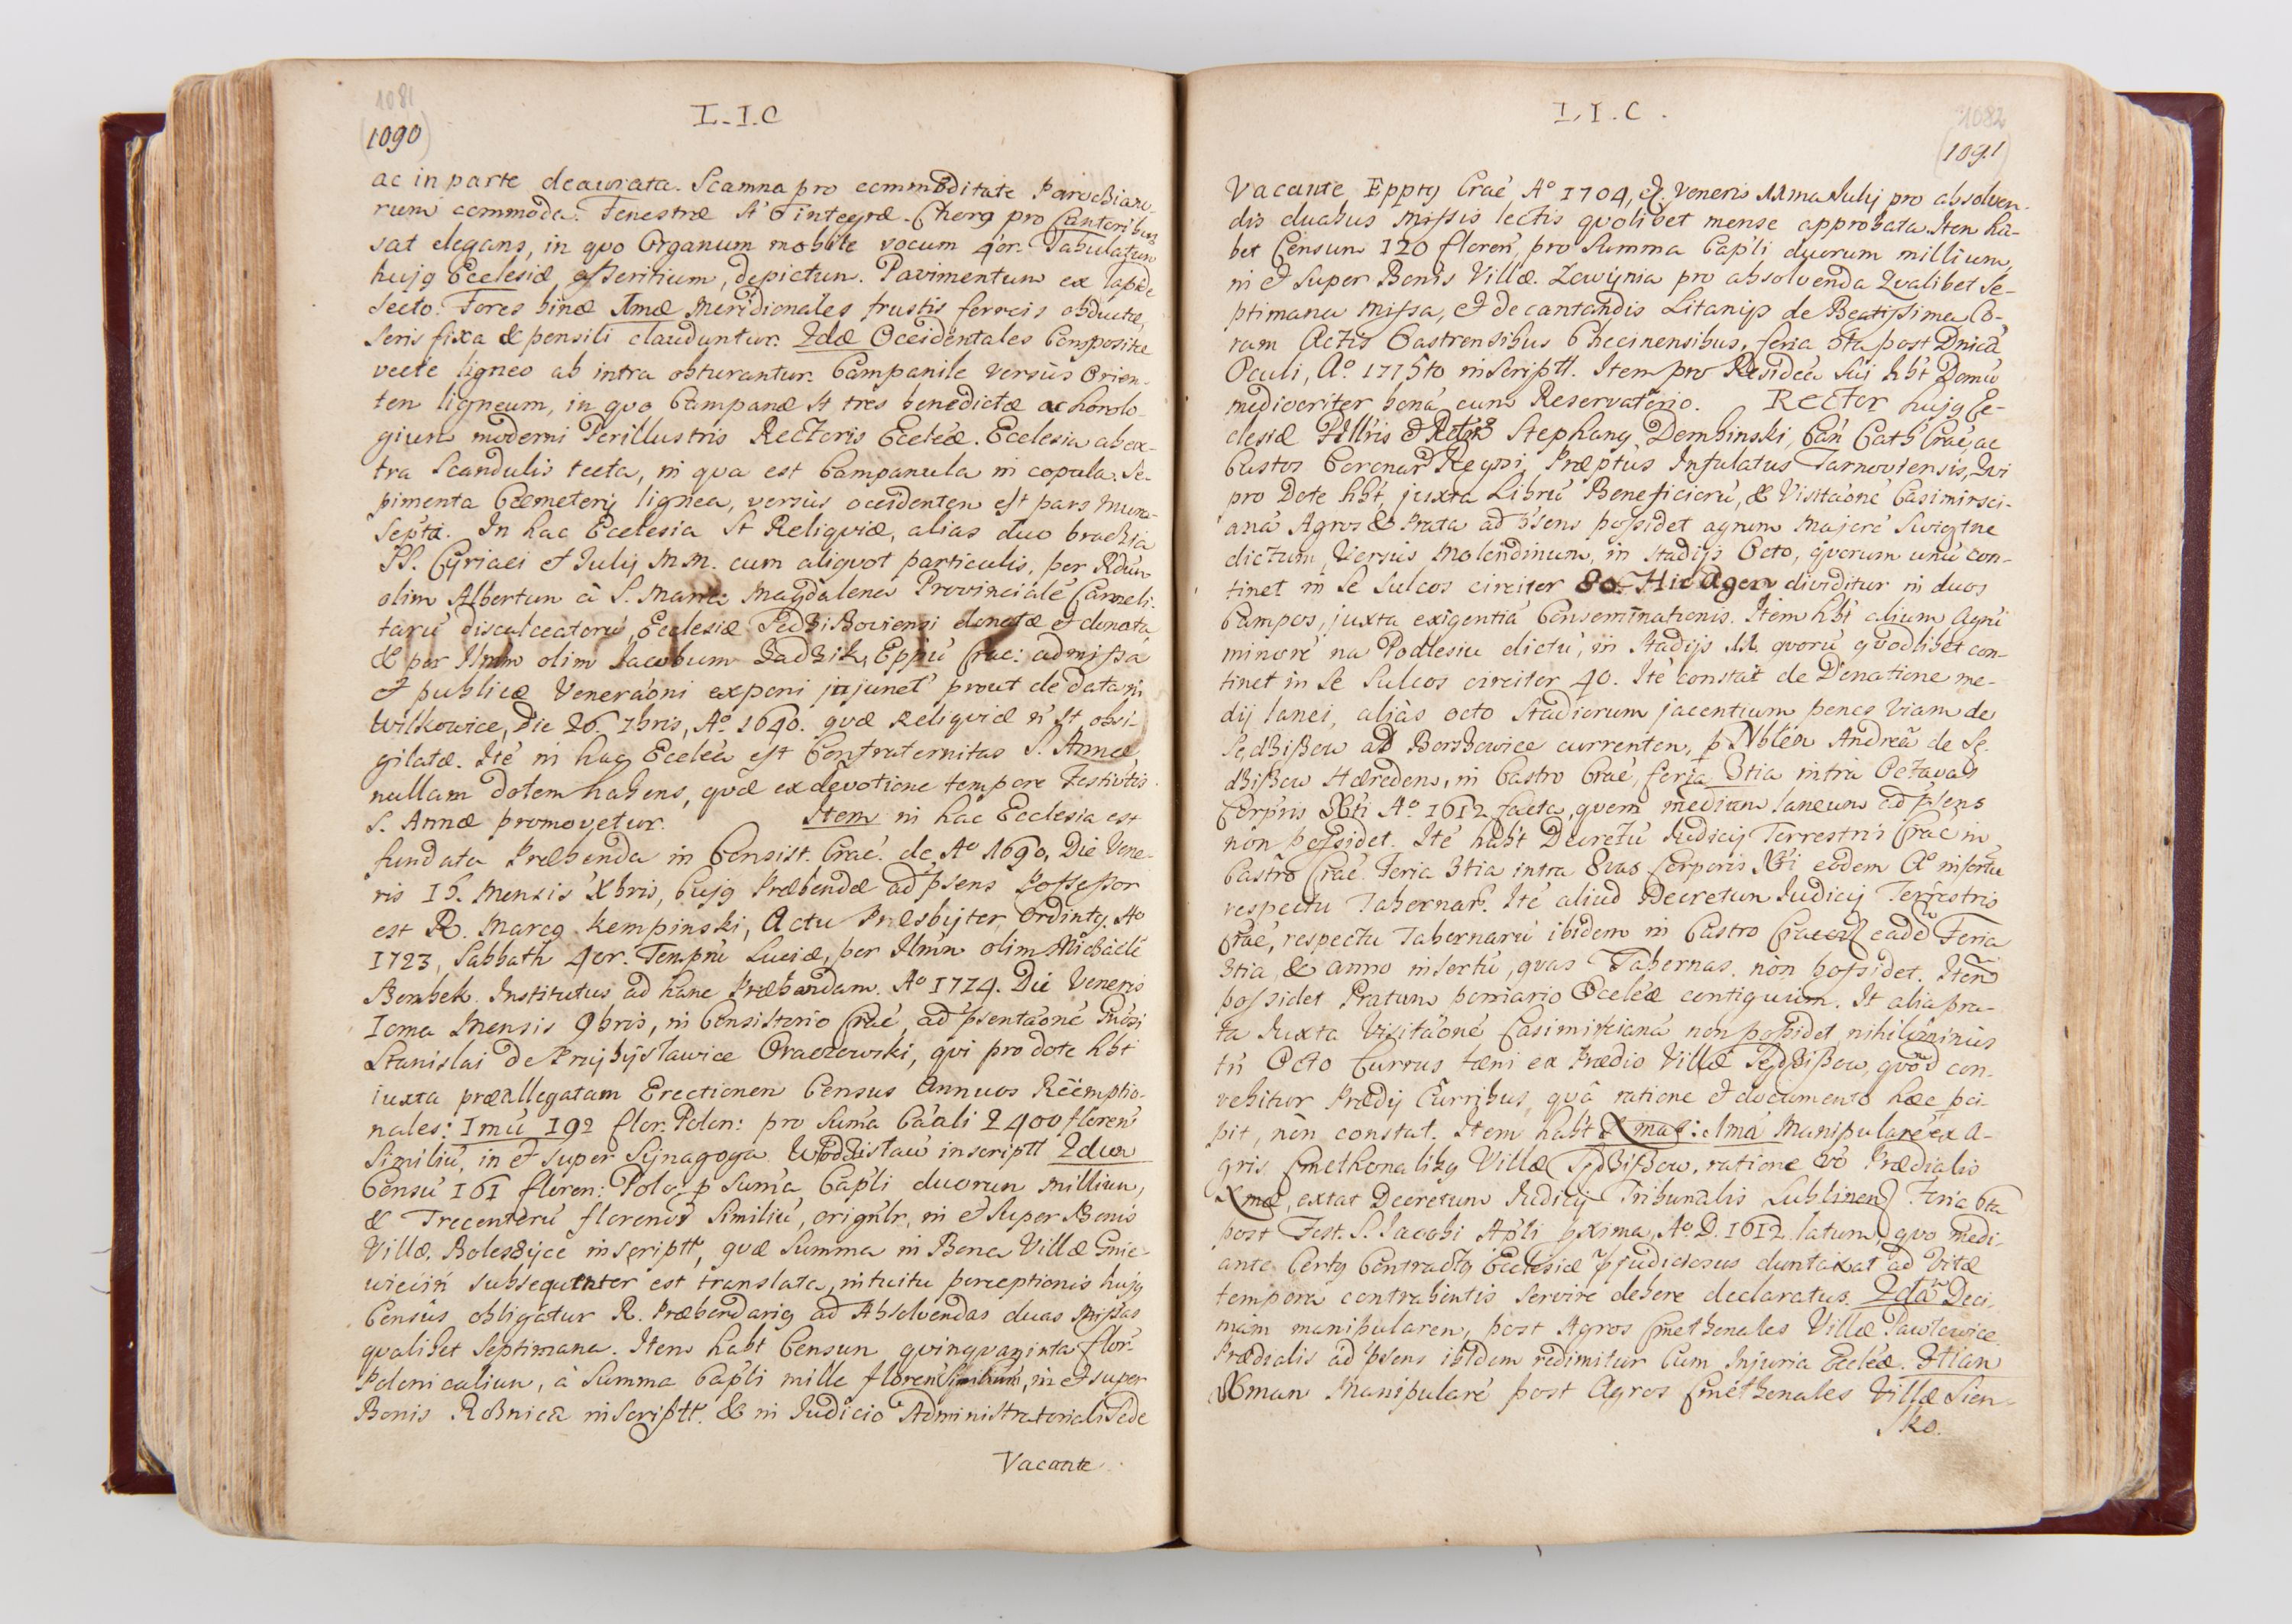 1081
(1090)
L.I.C
ac in parte deaurata. Scamna pro commoditate Parochiano-
rum commoda. Fenestræ st' 6 integræ. Chorg pro Cantoribus
sat elegans, in quo Organum mobile vocum 4or. Tabulatum
hujg Ecclesiæ, asseritium, depictum. Pavimentum ex lapide
secto. Fores binæ 1mæ Meridionales frustis ferreis obductæ,
seris fixa & pensili clauduntur. 2dæ Occidentales Compositæ
vecte ligneo ab intra obturantur. Campanile versùs Orien-
tem ligneum, in quo Campanæ st tres benedictæ ac horolo-
gium moderni Perillustris Rectoris Eccléæ. Ecclesia ab ex-
tra Scandulis tecta, in qua est Campanula in copula. Se-
pimenta Cæmeterij lignea, versùs occidentem est pars Muro-
septa. In hac Ecclesia st Reliqviæ, alias duo brachia
SS. Cyriaci et Julij M.M. cum aliqvot particulis, per Rdum
olim Albertum à S. Maria Magdalena Provincialé Carmeli-
tarú discalceatorú, Ecclesiæ Sedziszoviensi donatæ et donata,
& per Illmm olim Jacobum Zadzik, Eppú Crac: admissa
et publicæ Veneraóni exponi injunct' prout de data in
Wilkowice, Die 26. 7bris, Aº. 1640. quæ Reliqviæ ń st obsi-
gilatæ. Ité in hac Eccléa est Confraternitas S. Annæ,
nullam dotem habens, qvæ ex devotione tempore Festivtis
S. Annæ promovetur. Item in hac Ecclesia est
fundata Præbenda in Consist. Crac. de Aº 1690, Die Vene-
ris 15. Mensis Xbris, Cujg Præbendæ ad psens Possessor
est R. Marcg Kempinski, Actu Præsbijter, Ordintg. Aº
1723, Sabbath 4or. Tempru Luciæ, per Illmm olim Michaelé
Szembek. Institutus ad hanc Præbendam. Aº 1724. Die Veneris
10ma Mensis 9bris, in Consistorio Crac, ad psentaóné Gnosi
Stanislai de Przybysławice Oraczowski, qvi pro dote hbt
iuxta præallegatam Erectionem Census Annuos Reémptio-
nales: 1mú 192 flor. Polon: pro Sumá Caáli 2400 floren
Similiú, in et super Synagoga Wodzislaw inscriptt 2dum
Censú 161 floren: Polo, p Sumá Cápli duorum millium,
& Trecentorú florenor Similiú, orignlr, in et super Bonis
Villæ Boleszyce inscriptt, quæ Summa in Bona Villæ Gnie-
wiecin subsequenter est translata, intuitu perceptionis hujg
Censùs obligatur R. Præbendarig ad Absolvendas duas Missas
qvalibet Septimana. Item habt Censum qvinqvaginta flor.
Polonicalium, à Summa Cápli mille floren Similium, in et super
Bonis Rożnica inscriptt. & in Judicio Administratoriali Sede
Vacante
1082
(1091)
L.I.C.
Vacante Epptg Crac Aº 1704, d. Veneris 11ma Julij pro absolven-
dis duabus Missis lectis qvolibet mense approbata. Item ha-
bet Censum 120 floren, pro Summa Capli duorum millium,
in et super Bonis Villæ. Zawijnia pro absolvenda Qvalibet Se-
ptimana Missa, et decantandis Litanijs de Beatissima Co-
ram Actis Castrensibus Checinensibus, feria 6ta post Dnica
Oculi, Aº. 1715to inscriptt. Item pro Residéa Sui hbt Domú
mediocriter boná cum Reservatorio. Rector hujg Ec-
clesiæ PIllris & Rdissimus Stephang Dembinski, Cán Cath Crac, ac
Custos Coronar Regni, Præptus Infulatus Tarnoviensis, Qvi
pro Dote hbt, juxta Librú Beneficiorú, & Visitaóne Casimirsci-
aná Agros & Prata ad psens possidet agrum Majoré Swiętne
dictum, Versùs Molendinum, in Stadijs Octo, qvorum unú con-
tinet in se Sulcos circiter 80. Hic Ager dividitur in duos
Campos, juxta exigentiá Conseminationis. Item hbt alium Agrú
minoré na Podlesiu dictú, in Stadijs 11. qvorú qvodlibet con-
tinet in se Sulcos circiter 40. Ité constat de Donatione me-
dij lanei, aliàs octo Stadiorum jacentium penes Viam de
Sędziszow ad Borszowice currentem, p Nblem Andreá de Sę-
dziszow Hæredem, in Castro Crac, feria 3tia intra Octavas
Corpris Xti Aº. 1612 facta, quem medium laneum ad psens
non possidet. Ité habt Decretú Judicij Terrestris Crac in
Castro Crac Feria 3tia intra 8vas Corporis Xti eodem Aº insertú
respectu Tabernar. Ité aliud Decretum Judicij Terrestris
Crac, respectu Tabernarú ibidem in Castro Cracen eadé Feria
3tia & anno insertú, qvas Tabernas non possidet. Item
possidet Pratum pomario Eccléæ contiguum. It alia pra-
ta Juxta Visitaóné Casimirscianá non possidet, nihilominùs
tñ Octo Currus fæni ex Prædio Villæ Sędziszow, qvod con-
vehitur Prædij Curribus, qvâ ratione et documento hæc pci-
pit, nòn constat. Item habt Xmas: 1má Manipularé ex A-
gris Cmethonalibg Villæ Sędziszow, ratione vó Prædialis
Xmæ, extat Decretum Judicij Tribunalis Lublinen Feria 6ta
post Fest. S. Jacobi Apli pxima, Aº. D. 1612 latum, qvo medi-
ante Certg Contractg Ecclesiæ pjudiciosus duntaxat ad Vitæ
tempora contrahentis Servire debere declaratus. 2dá Deci-
mam manipularem, post Agros Cmethonales Villæ Pawłowice
Prædialis ad psens ibidem redimitur Cum Injuria Eccléæ. 3tiam
Xmam Manipularé post Agros Cmethonales Villæ Sien-
sko.